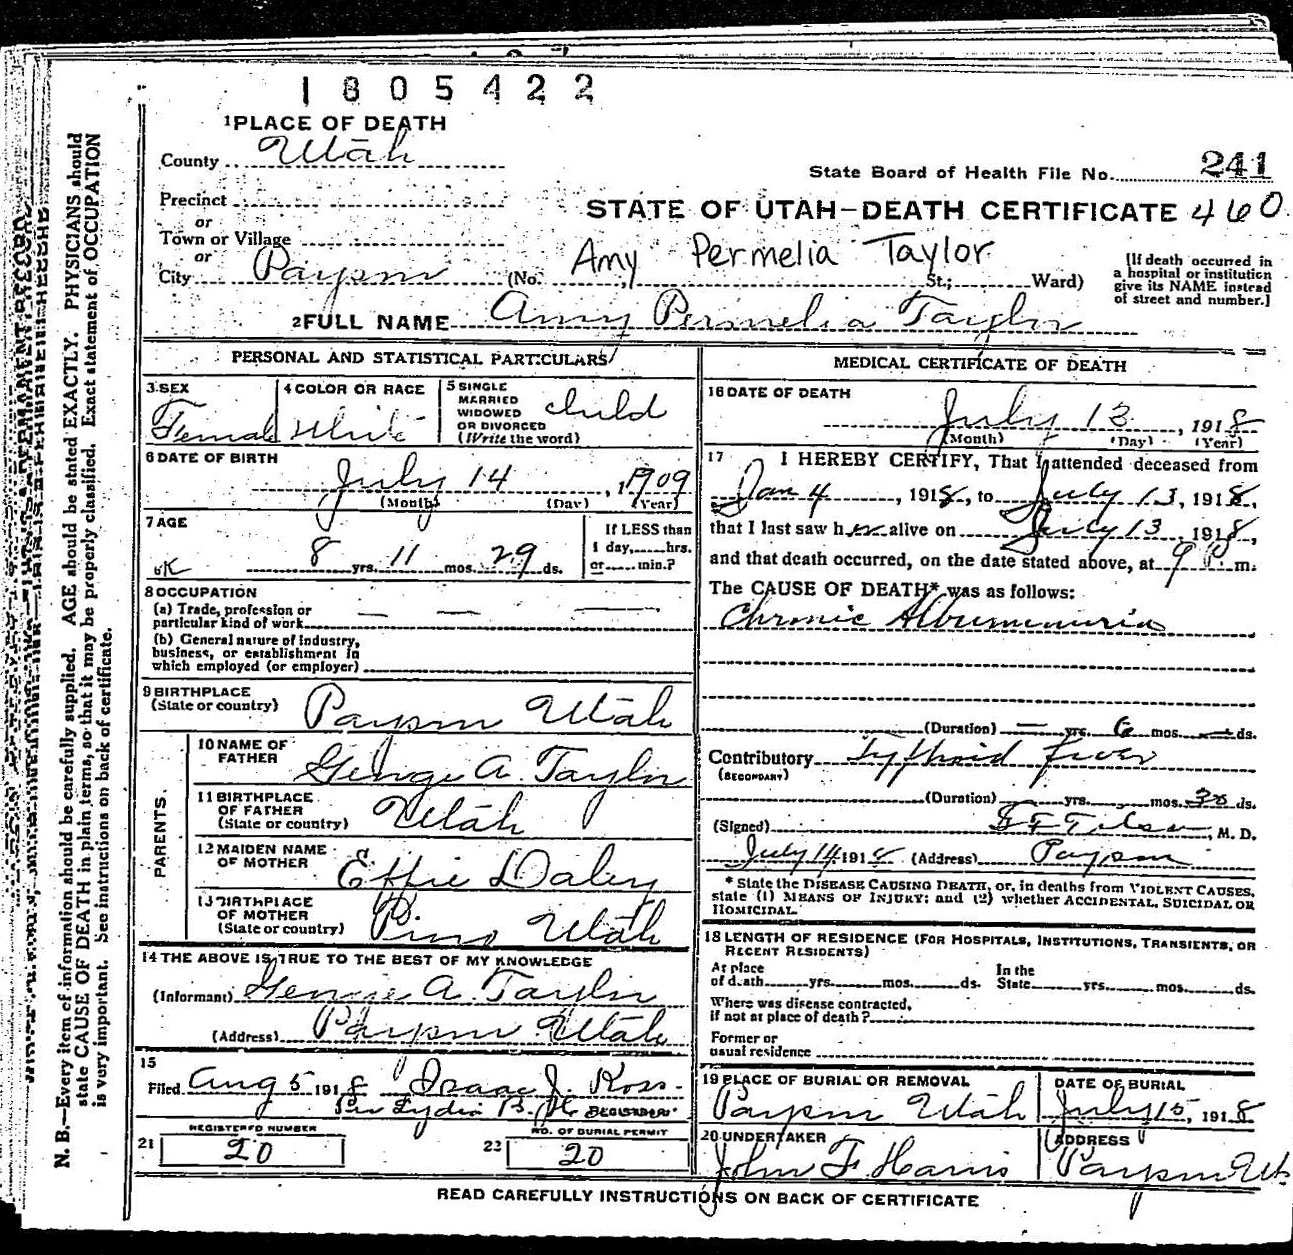 1805422
1 PLACE OF DEATH
County Utah
State Board of Health File No. 241
Precinct
STATE OF UTAH—DEATH CERTIFICATE 460
or
Town or Village
or
Amy Permelia Taylor
City Payson (No. St.; Ward)
[If death occurred in
a hospital or institution
give its NAME instead
of street and number.]
2 FULL NAME Amy Permelia Taylor
PERSONAL AND STATISTICAL PARTICULARS
3 SEX
Female
4 COLOR OR RACE
White
5 SINGLE
MARRIED
WIDOWED
OR DIVORCED
(Write the word)
child
6 DATE OF BIRTH
July 14, 1909
(Month) (Day) (Year)
7 AGE
8 yrs. 11 mos. 29 ds.
If LESS than
1 day, hrs.
or min.?
8 OCCUPATION
(a) Trade, profession or
particular kind of work
(b) General nature of industry,
business, or establishment in
which employed (or employer)
9 BIRTHPLACE
(State or country) Payson Utah
PARENTS.
10 NAME OF
FATHER George A. Taylor
11 BIRTHPLACE
OF FATHER
(State or country) Utah
12 MAIDEN NAME
OF MOTHER Effie Daley
13 BIRTHPLACE
OF MOTHER
(State or country) Utah
14 THE ABOVE IS TRUE TO THE BEST OF MY KNOWLEDGE
(Informant) George A. Taylor
(Address) Payson Utah
15
Filed Aug 5 1918 Isaac J. Ross
Per Lydia B. REGISTRAR
REGISTERED NUMBER
21 20
NO. OF BURIAL PERMIT
22 20
MEDICAL CERTIFICATE OF DEATH
16 DATE OF DEATH
July 13, 1918
(Month) (Day) (Year)
17 I HEREBY CERTIFY, That I attended deceased from
Jan 4, 1918, to July 13, 1918,
that I last saw her alive on July 13, 1918,
and that death occurred, on the date stated above, at 9 P. m.
The CAUSE OF DEATH* was as follows:
Chronic Albumenuria
(Duration) — yrs. 6 mos. — ds.
Contributory Typhoid fever
(SECONDARY)
(Duration) yrs. mos. 30 ds.
(Signed) M. D.
July 14 1918 (Address) Payson
* State the DISEASE CAUSING DEATH, or, in deaths from VIOLENT CAUSES,
state (1) MEANS OF INJURY; and (2) whether ACCIDENTAL, SUICIDAL OR
HOMICIDAL.
18 LENGTH OF RESIDENCE (FOR HOSPITALS, INSTITUTIONS, TRANSIENTS, OR
RECENT RESIDENTS)
At place
of death yrs. mos. ds.
In the
State yrs. mos. ds.
Where was disease contracted,
if not at place of death?
Former or
usual residence
19 PLACE OF BURIAL OR REMOVAL
Payson Utah
DATE OF BURIAL
July 15, 1918
20 UNDERTAKER
John F Harris
ADDRESS
Payson Ut.
READ CAREFULLY INSTRUCTIONS ON BACK OF CERTIFICATE
N. B.—Every item of information should be carefully supplied. AGE should be stated EXACTLY. PHYSICIANS should
state CAUSE OF DEATH in plain terms, so that it may be properly classified. Exact statement of OCCUPATION
is very important. See instructions on back of certificate.